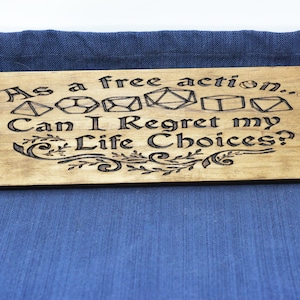 As a free action..
Can I Regret my
Life Choices?